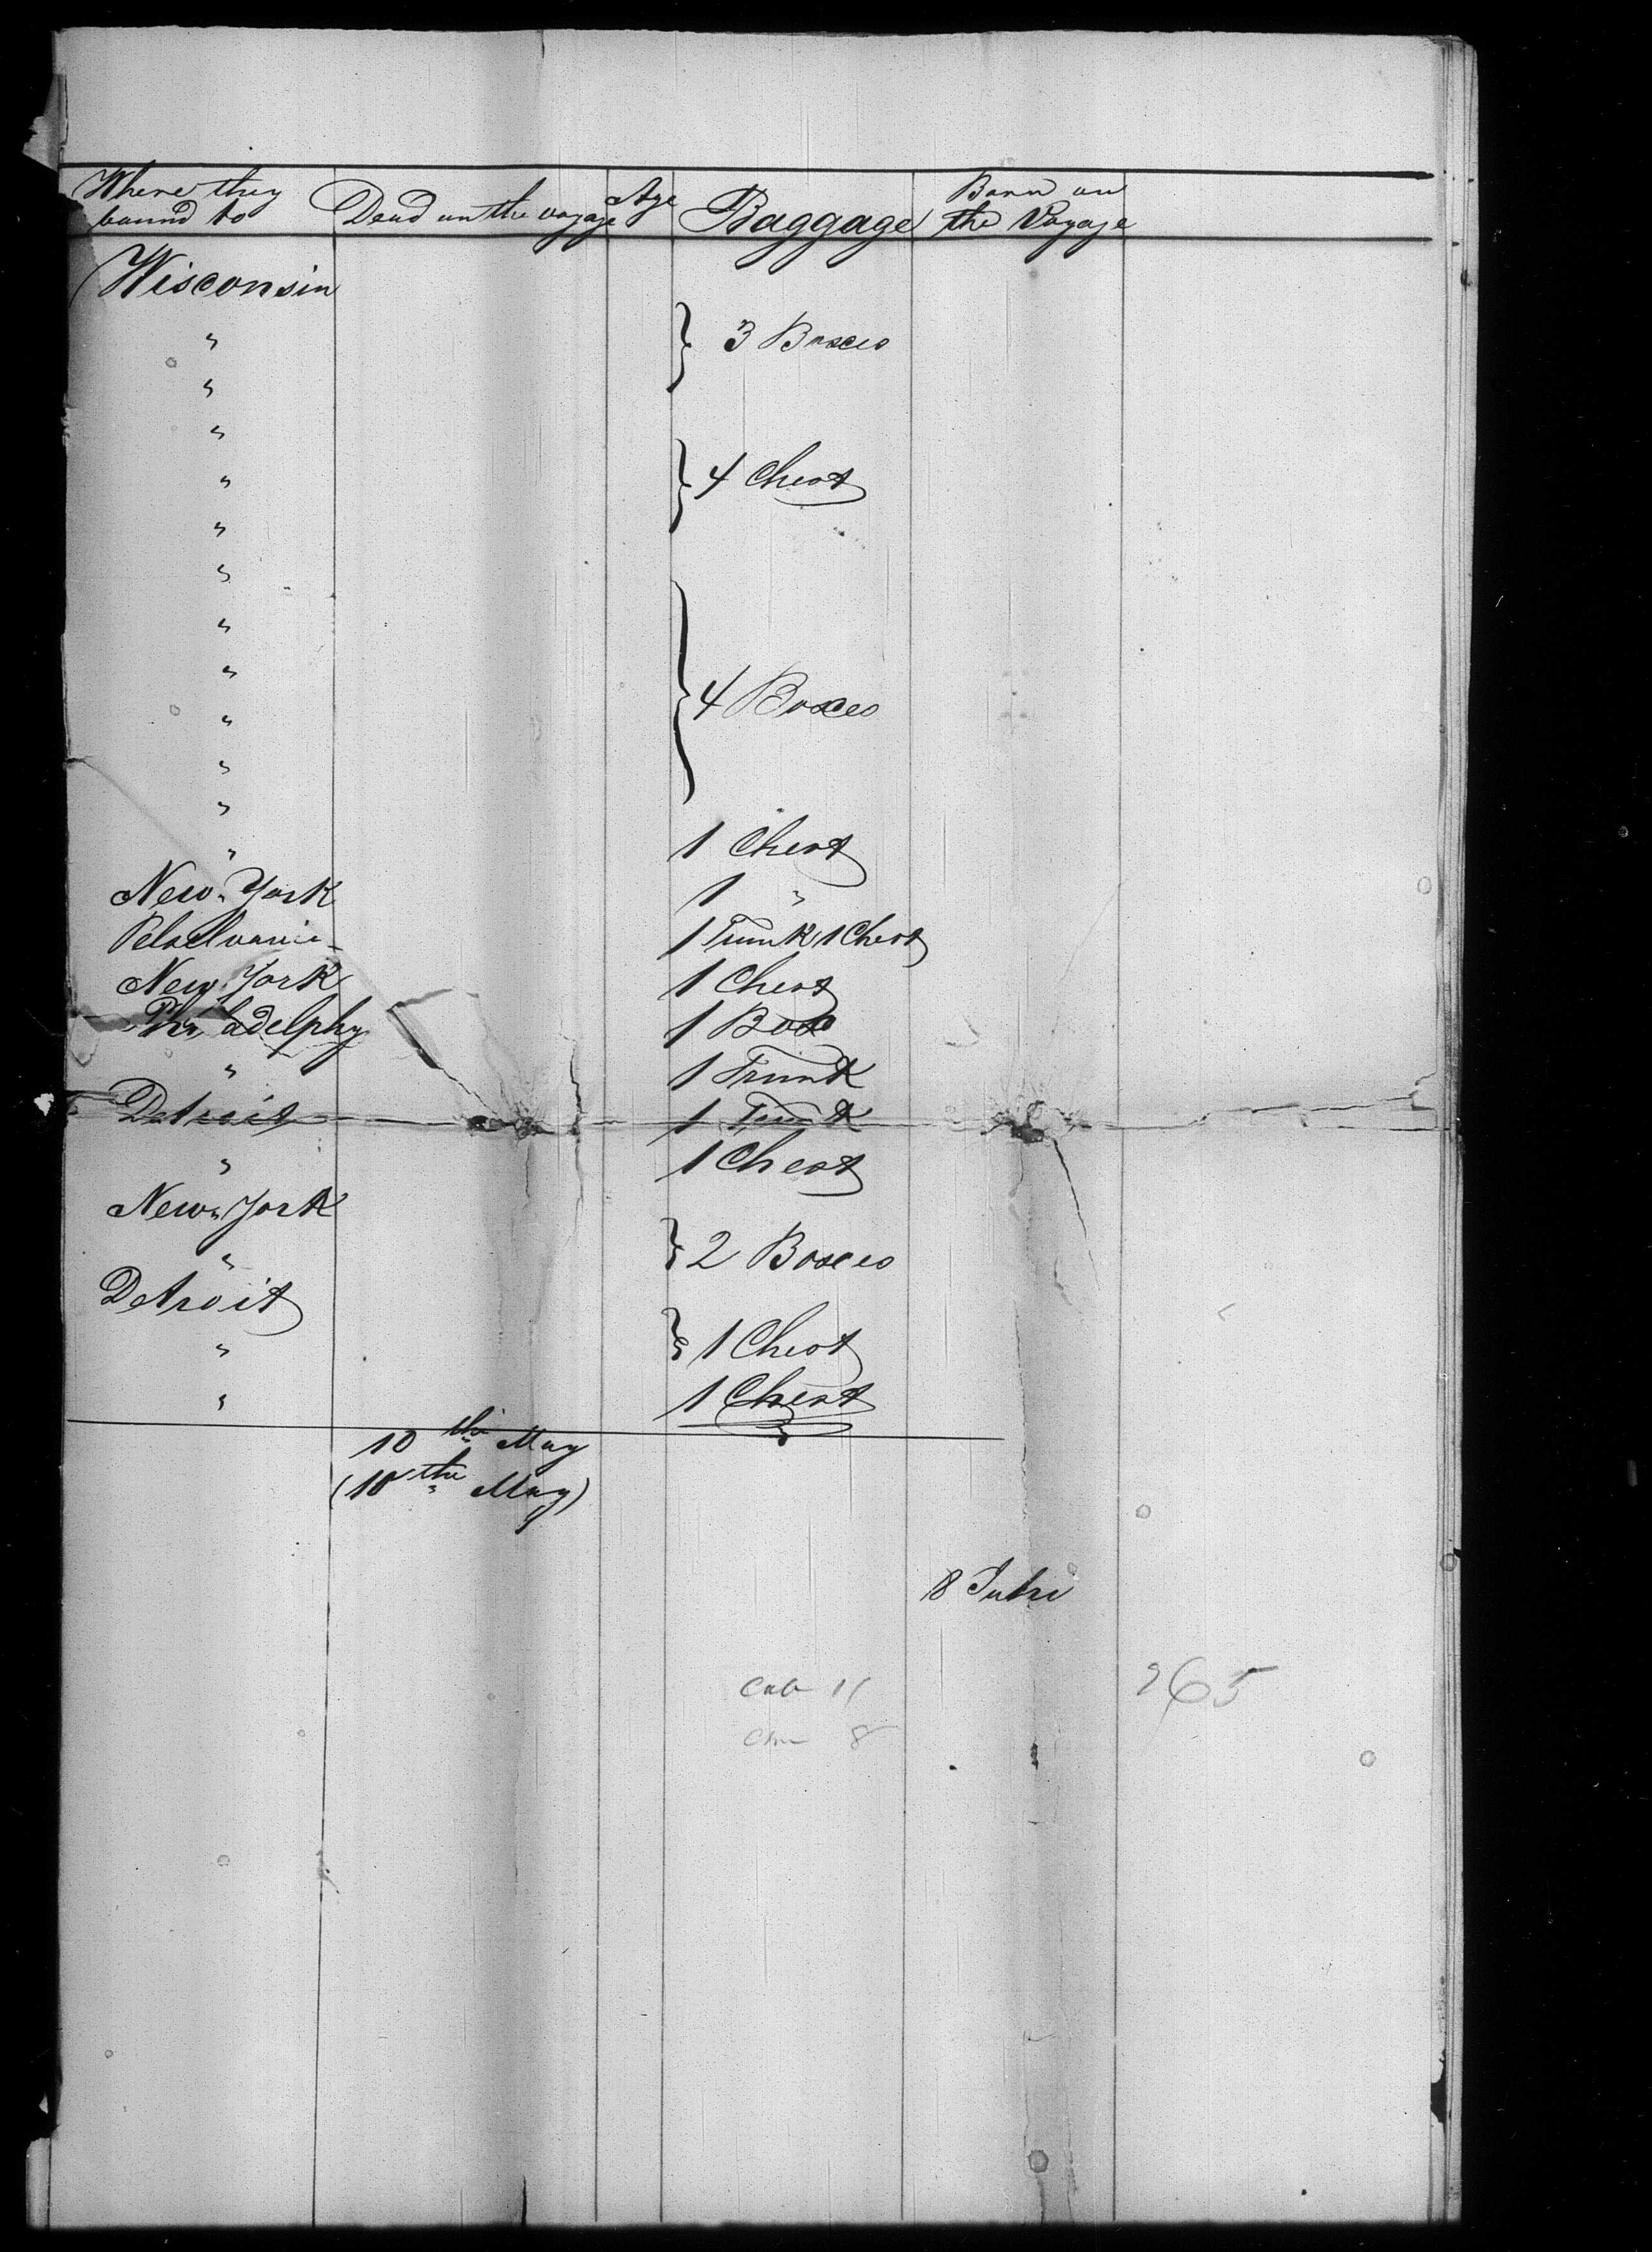 Where they bound to Dead on the voyage Age Baggage Born on the Voyage
Wisconsin
"
" 3 Boxes
"
"
" 4 Chest
"
"
"
"
" 4 Boxes
"
"
" 1 Chest
New-York 1 "
1 Trunk 1 Chest
New York 1 Chest
Philadelphy 1 Box
" 1 Trunk
Detroit 1 Trunk
" 1 Chest
New York
" 2 Boxes
Detroit
" 1 Chest
" 1 Chest
10 the May
(10 the May)
8
11 265
8